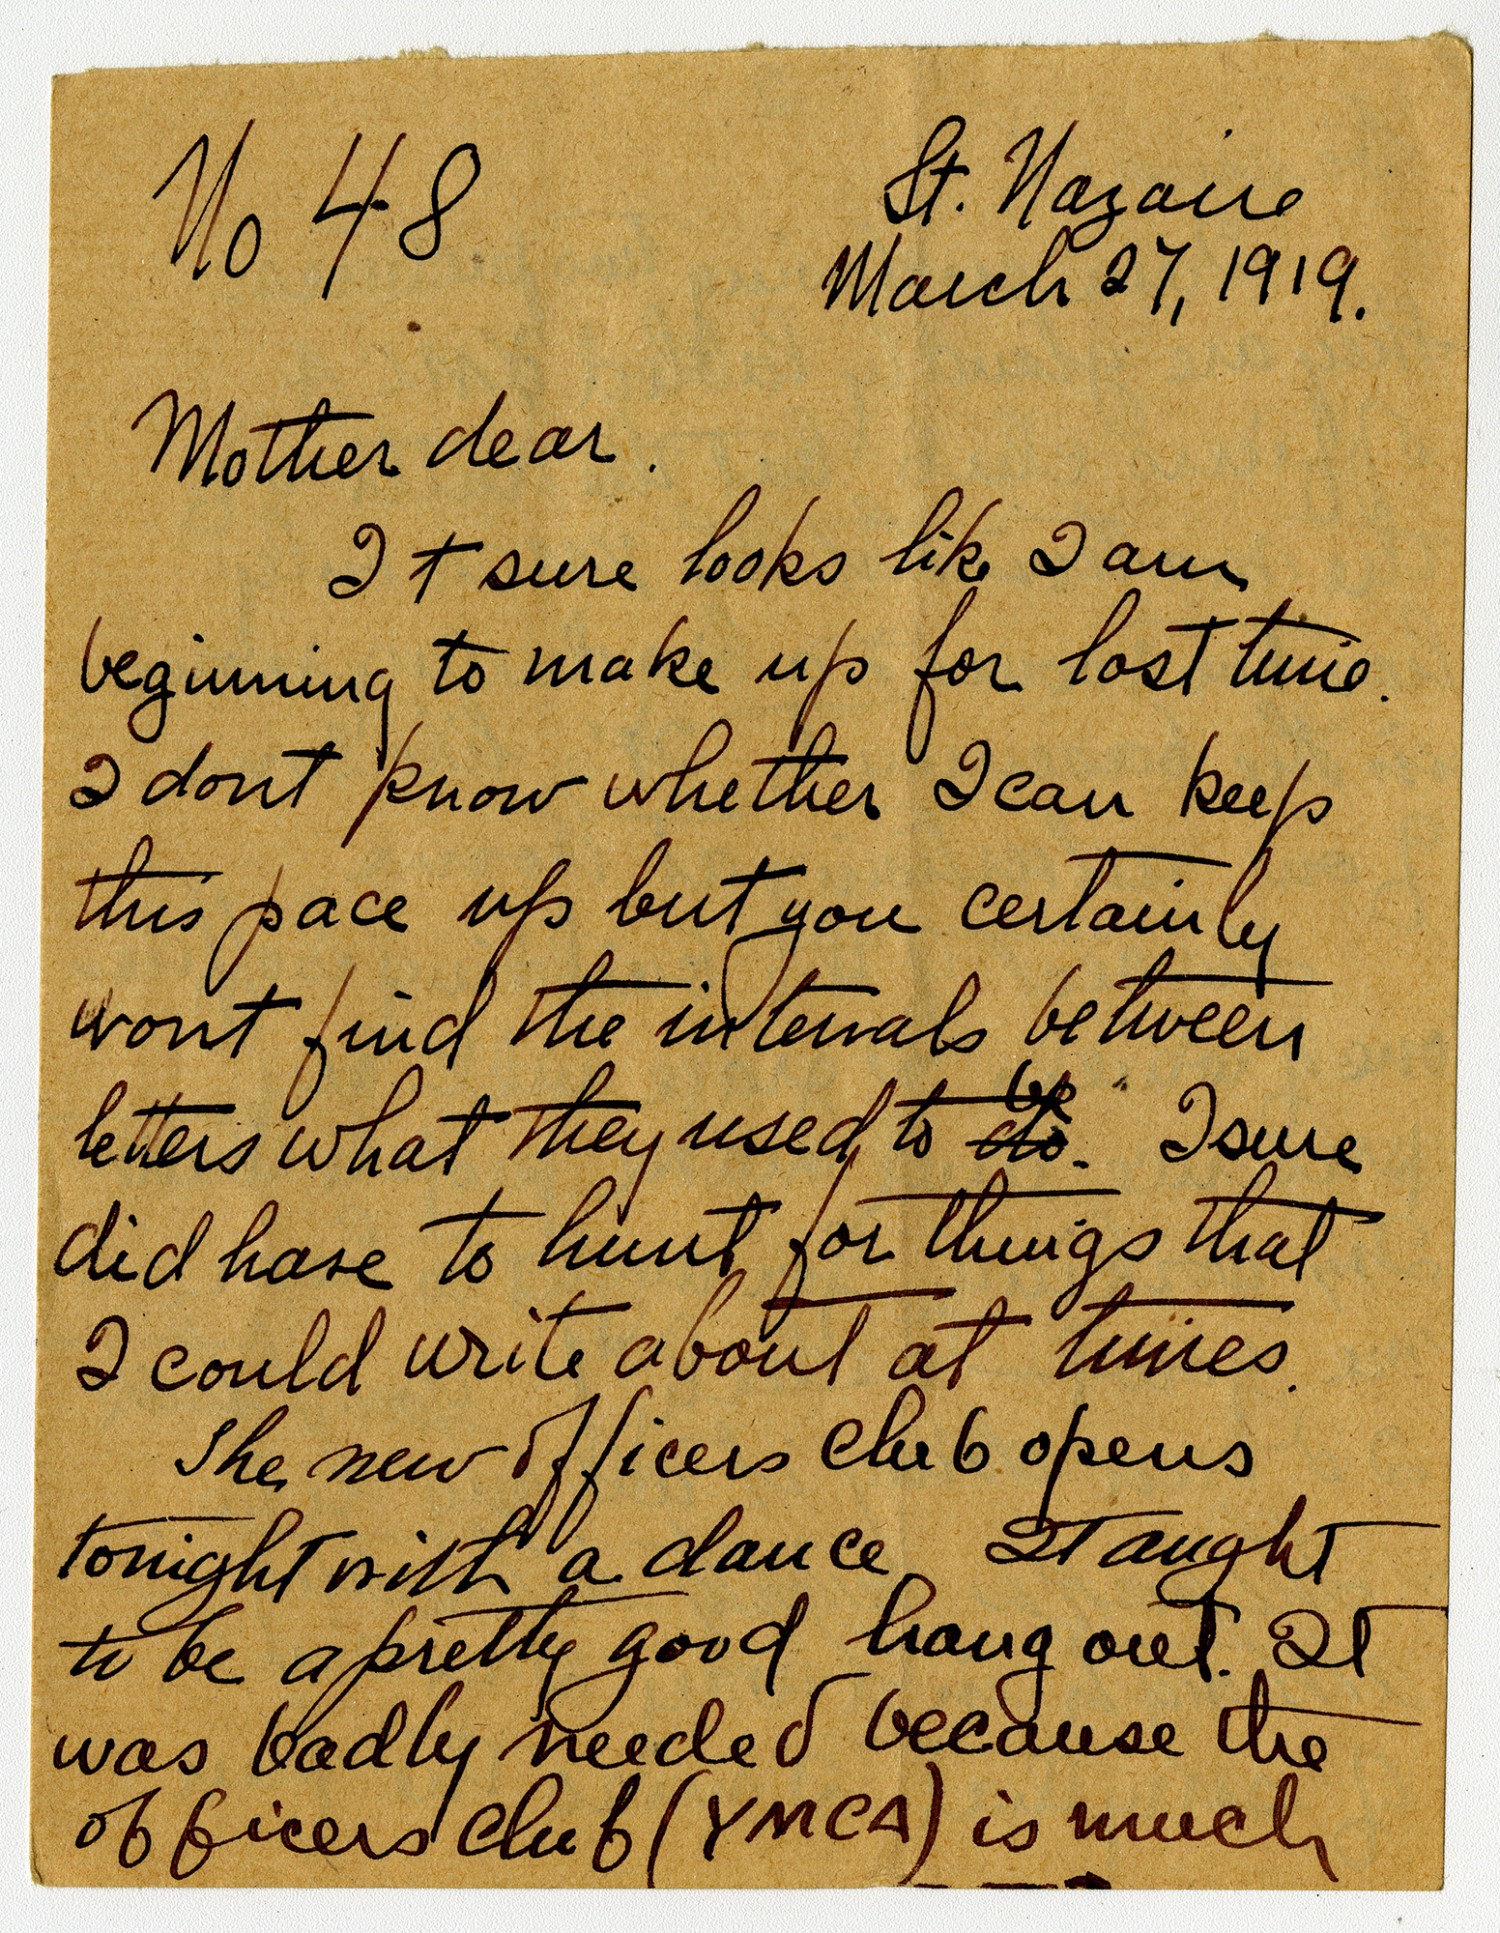 No 48
St. Nazaire
March 27, 1919.
Mother dear.
It sure looks like I am
beginning to make up for lost time.
I dont know whether I can keep
this pace up but you certainly
wont find the intervals between
letters what they used to do be. I sure
did have to hunt for things that
I could write about at times.
The new officers club opens
tonight with a dance It aught
to be a pretty good hang out. It
was badly needed because the
officers club (YMCA) is much